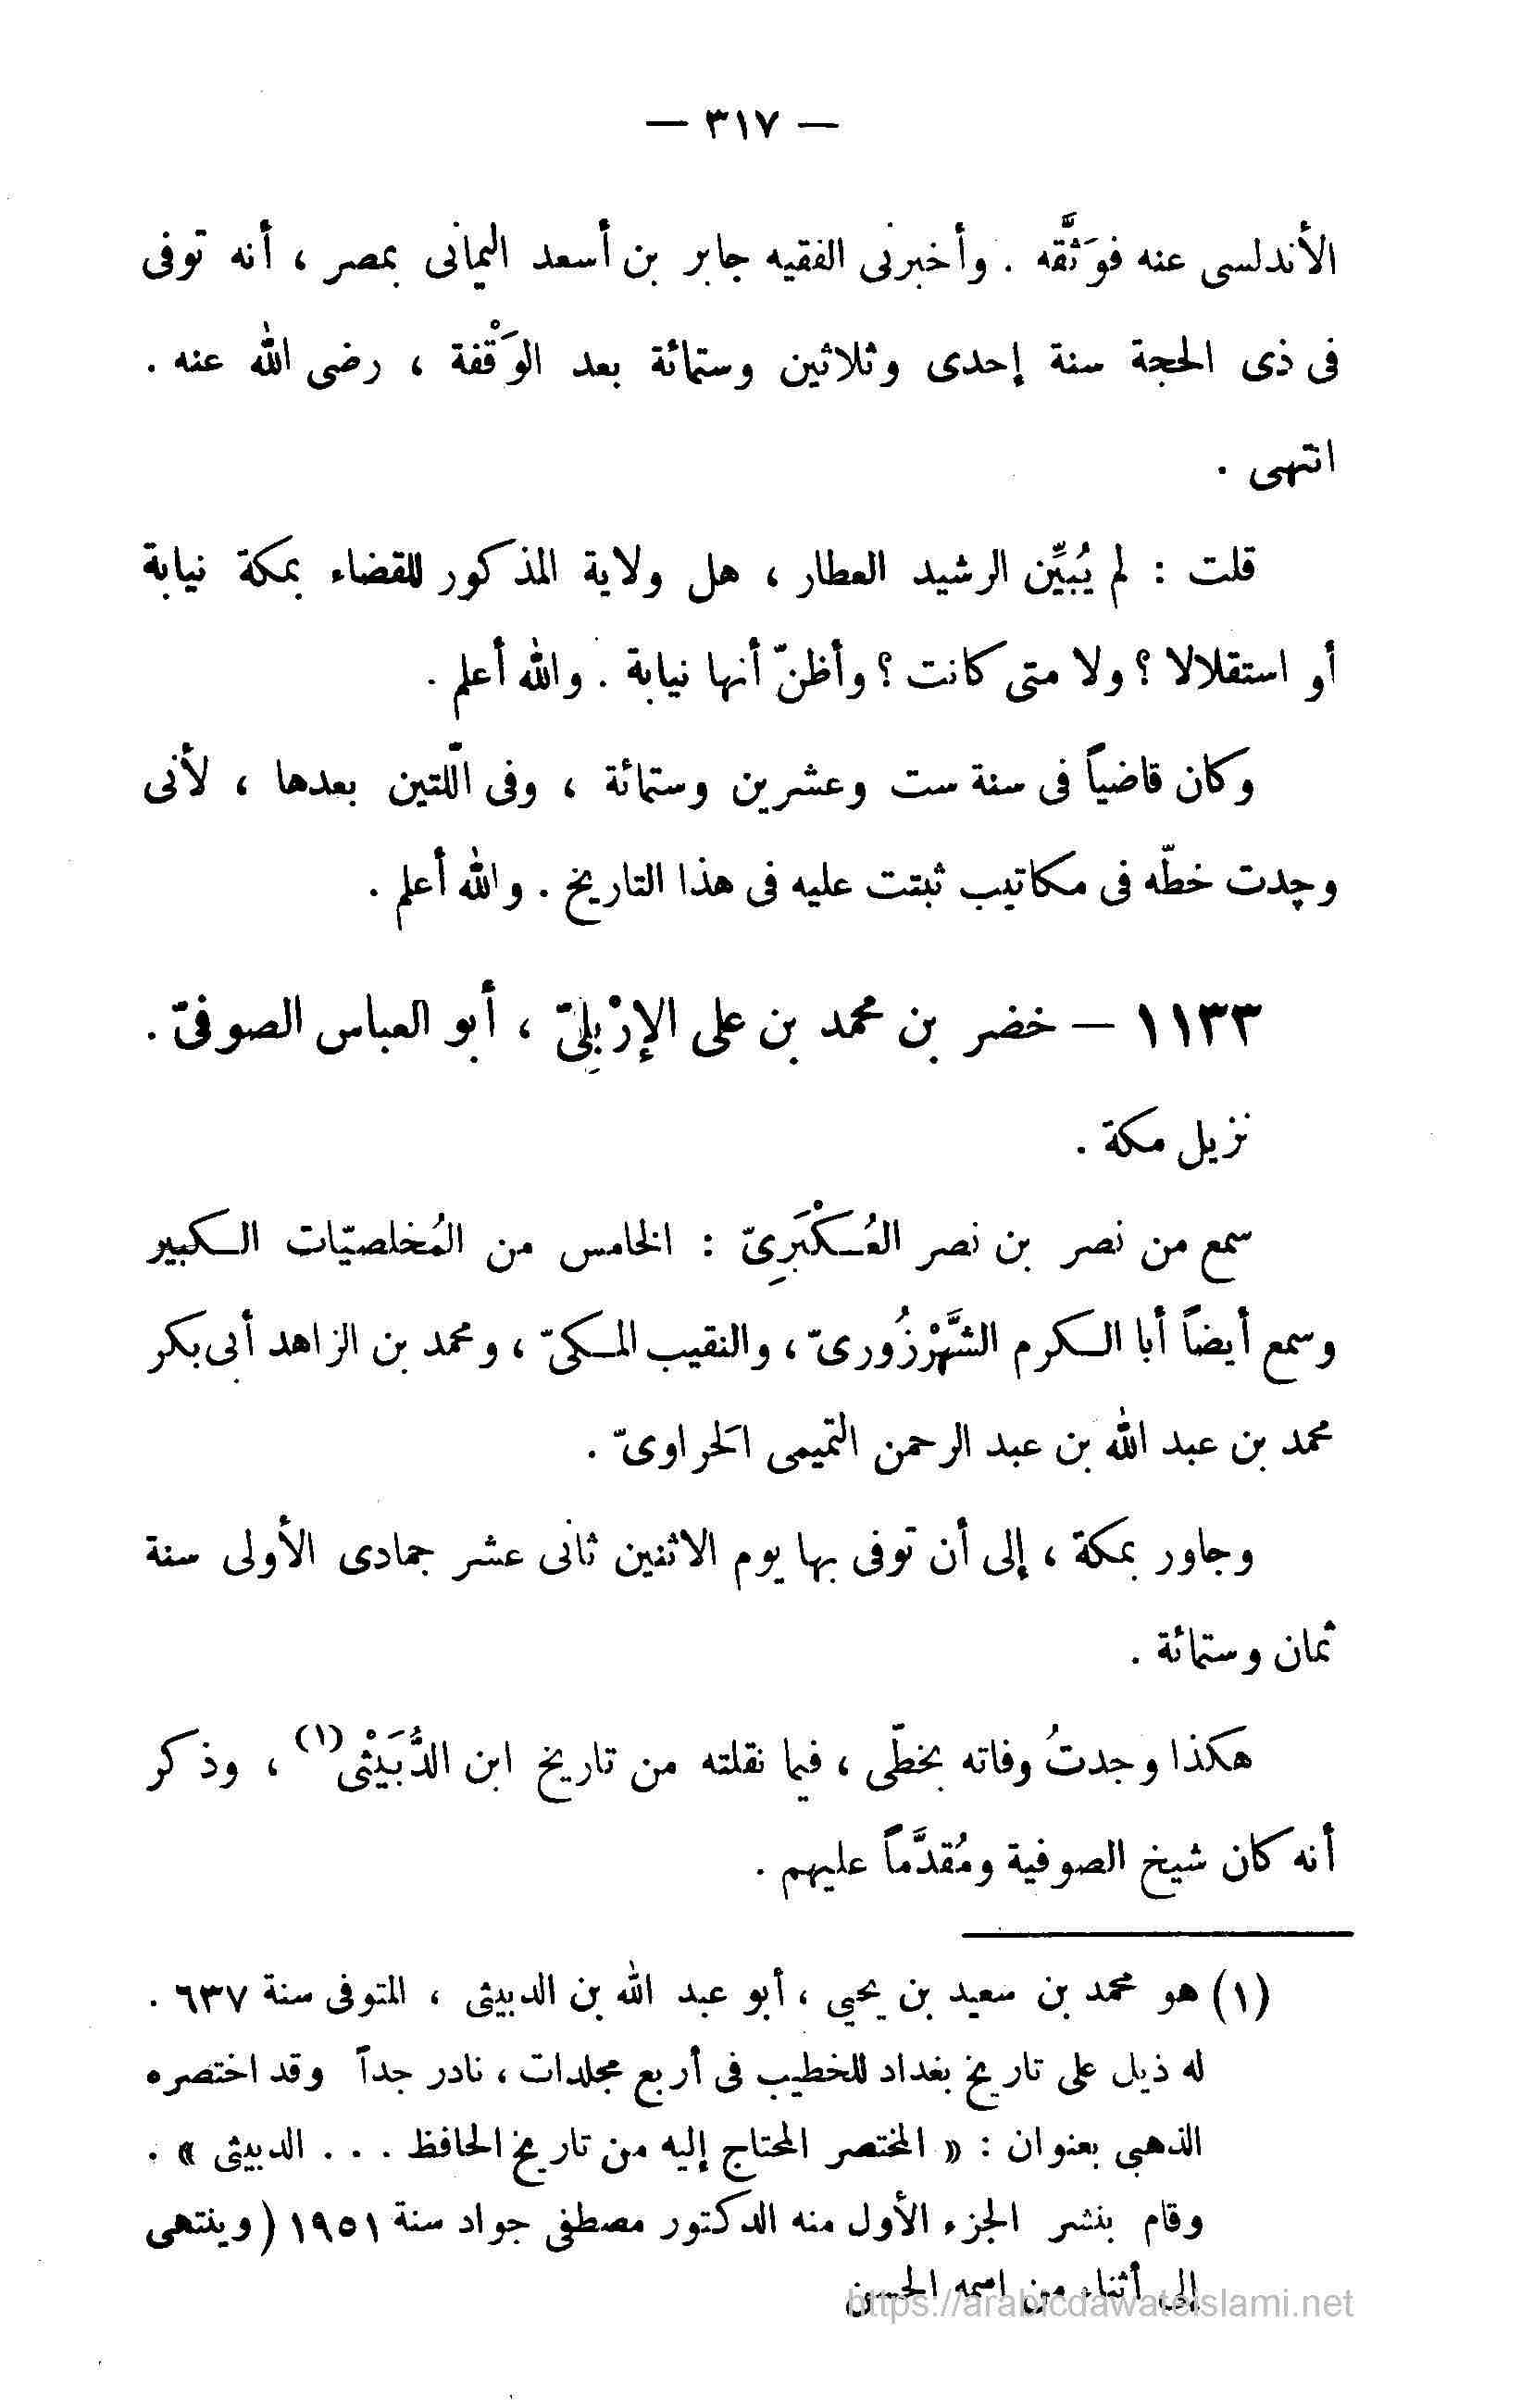 — ٣١٧ —
الأندلسى عنه فوَثَّقه . وأخبرنى الفقيه جابر بن أسعد اليمانى بمصر ، أنه توفى
فى ذى الحجة سنة إحدى وثلاثين وستمائة بعد الوَقْفة ، رضى الله عنه .
انتهى .
قلت : لم يُبيِّن الرشيد العطار ، هل ولاية المذكور للقضاء بمكة نيابة
أو استقلالا ؟ ولا متى كانت ؟ وأظنّ أنها نيابة . والله أعلم .
وكان قاضياً فى سنة ست وعشرين وستمائة ، وفى الّلتين بعدها ، لأنى
وجدت خطّه فى مكاتيب ثبتت عليه فى هذا التاريخ . والله أعلم .
١١٣٣ — خضر بن محمد بن على الإرْبِلىّ ، أبو العباس الصوفىّ .
نزيل مكة .
سمع من نصر بن نصر العُكْبَرِىّ : الخامس من المُخلصيّات الكبير
وسمع أيضاً أبا الكرم الشَّهْرْزُورىّ ، والنقيب المكىّ ، ومحمد بن الزاهد أبى بكر
محمد بن عبد الله بن عبد الرحمن التميمى الَحراوىّ .
وجاور بمكة ، إلى أن توفى بها يوم الاثنين ثانى عشر جمادى الأولى سنة
ثمان وستمائة .
هكذا وجدتُ وفاته بخطّى ، فيما نقلته من تاريخ ابن الدُّبَيْثى(١) ، وذكر
أنه كان شيخ الصوفية ومُقدَّماً عليهم .
(١) هو محمد بن سعيد بن يحيى ، أبو عبد الله بن الدبيثى ، المتوفى سنة ٦٣٧ .
له ذيل على تاريخ بغداد للخطيب فى أربع مجلدات ، نادر جداً وقد اختصره
الذهبى بعنوان : « المختصر المحتاج إليه من تاريخ الحافظ . . . الدبيثى » .
وقام بنشر الجزء الأول منه الدكتور مصطفى جواد سنة ١٩٥١ (وينتهى
إلى أثناء من اسمه الحسن
https://arabicdawateislami.net